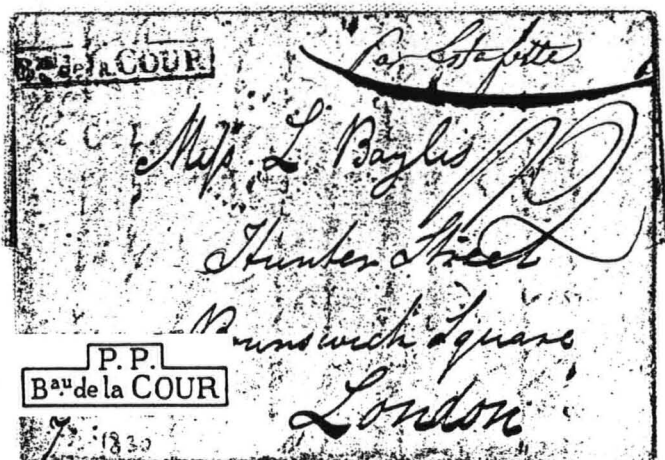 Bau de la COUR
par Estafette
Miss L Baylis
Hunter Street
Brunswick Square
London
P. P.
Bau de la COUR
1830